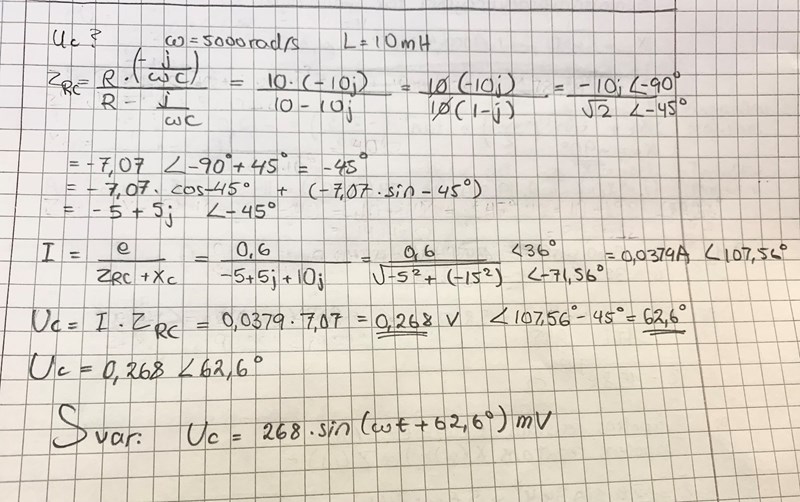 Uc? ω=5000rad/s L=10mH
Z_RC = R·(-j/ωC) / (R - j/ωC) = 10·(-10j) / (10-10j) = 10(-10j) / (10(1-j)) = -10j ∠-90° / (√2 ∠-45°)
= -7,07 ∠-90°+45° = -45°
= -7,07· cos-45° + (-7,07·sin-45°)
= -5+5j ∠-45°
I = e / (Z_RC + X_C) = 0,6 / (-5+5j+10j) = 0,6 ∠36° / (√-5²+(-15²) ∠-71,56°) = 0,0379A ∠107,56°
Uc = I·Z_RC = 0,0379·7,07 = 0,268 V ∠107,56°-45° = 62,6°
Uc = 0,268 ∠62,6°
Svar: Uc = 268·sin(ωt+62,6°)mV